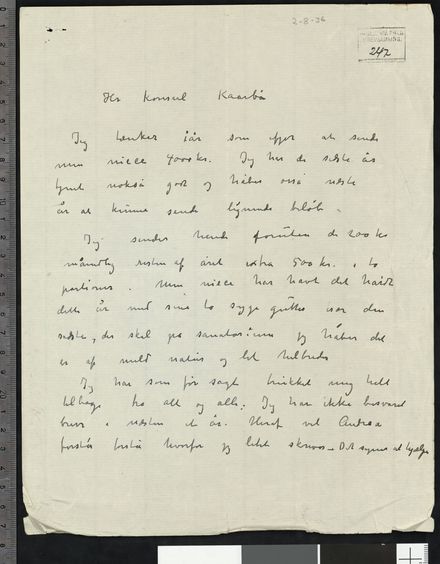 2-8-36
247
Hr Konsul Kaarbö
Jeg tænker iår som ifjor at sende
min niece 4000 kr. Jeg har de sidste år
tjent nokså godt og håber også næste
år at kunne sende lignende beløb.
Jeg sender hende foruten de 200 kr
månedlig resten af året extra 500 kr. i to
portioner. Min niece har havt det hårdt
dette år med sine to syge gutter især den
sidste, der skal på sanatorium jeg håber det
er af mild natur og let helbredes
Jeg har som før sagt trukket mig helt
tilbage fra alt og alle; Jeg har ikke besvaret
brev i næsten et år. Heraf vil Andrea
forstå forstå hvorfor jeg lidet skriver – Det synes at hjælpe